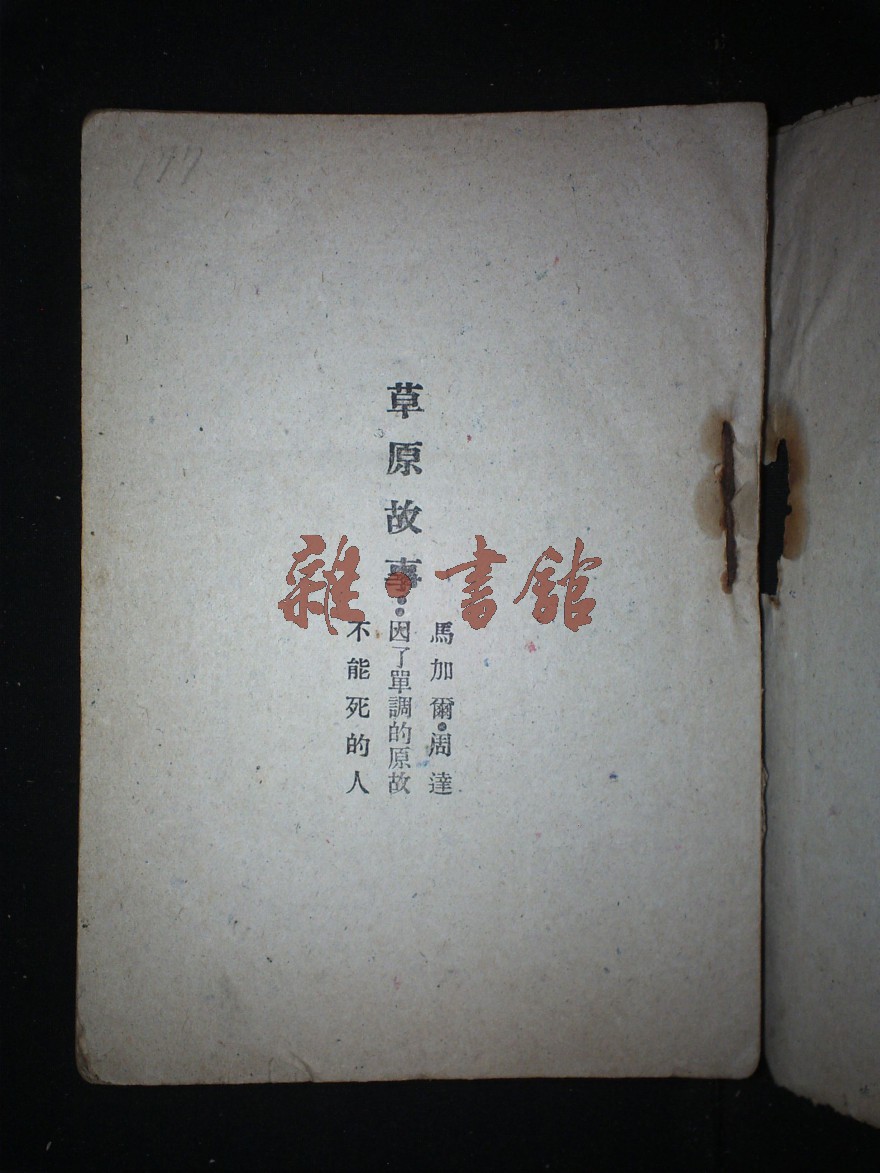 177
草原故事：
馬加爾·周達
因了單調的原故
不能死的人
雜·書館